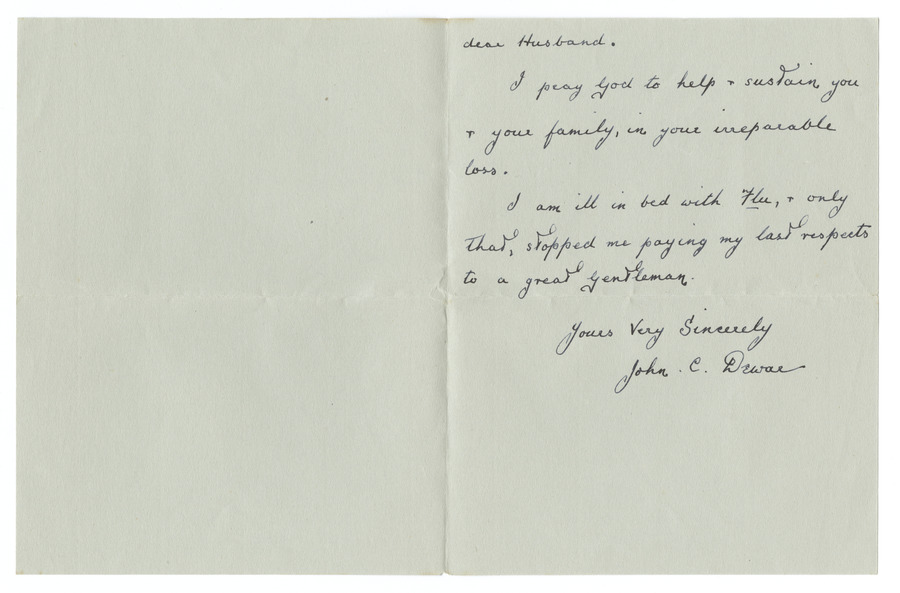 dear Husband.
I pray God to help + sustain you
+ your family, in your irreparable
loss.
I am ill in bed with Flu, + only
that, stopped me paying my last respects
to a great Gentleman.
Yours Very Sincerely
John. C. Dewar